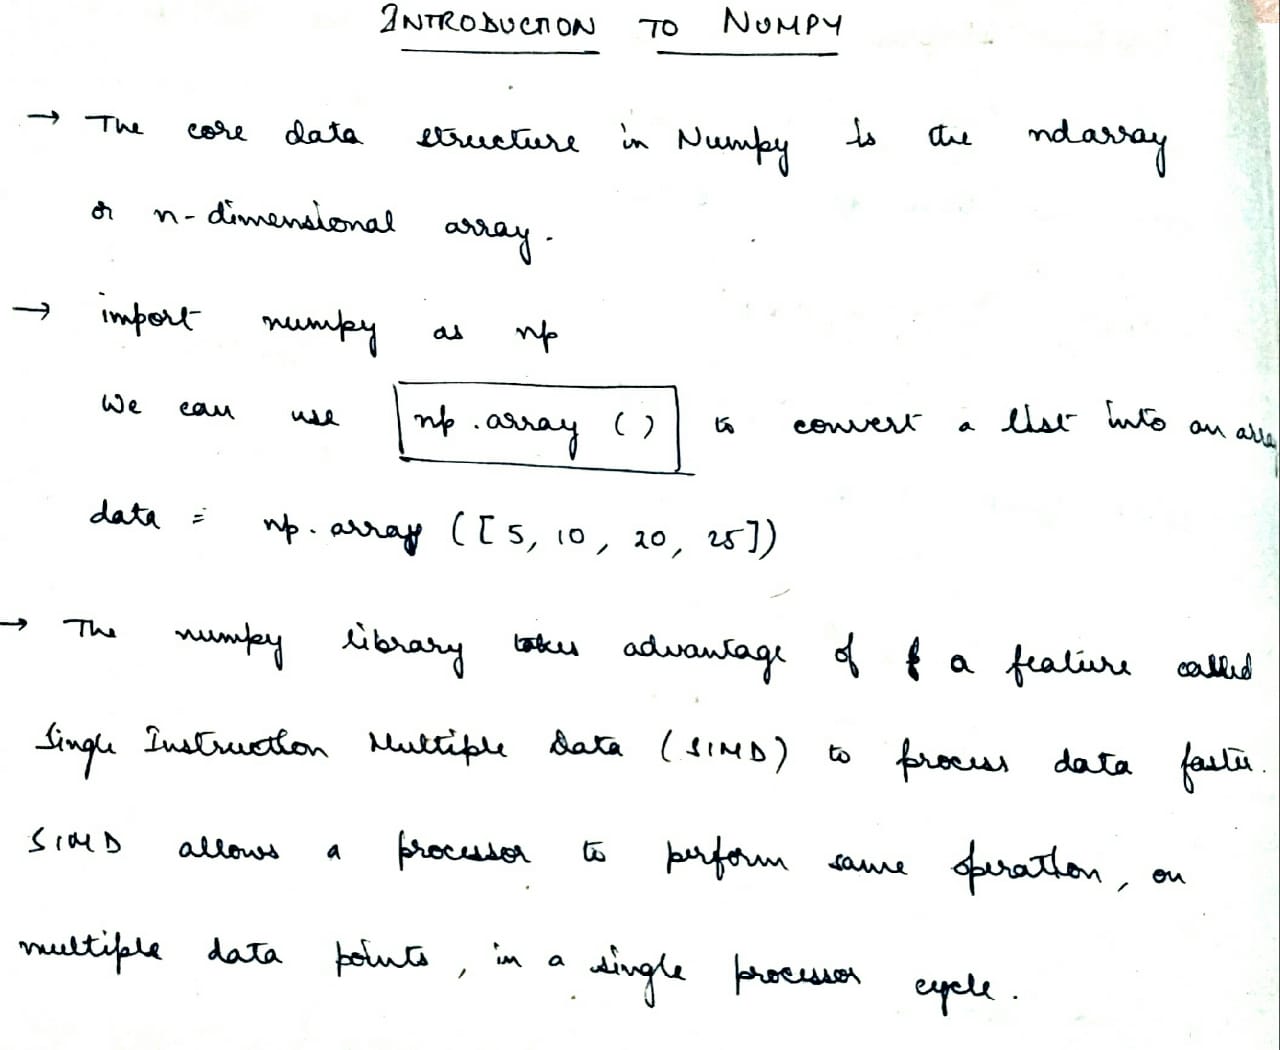 INTRODUCTION TO NUMPY
→ The core data structure in Numpy is the ndarray
or n-dimensional array.
→ import numpy as np
We can use np.array () to convert a list into an
data = np.array ([5, 10, 20, 25])
→ The numpy library takes advantage of a feature called
Single Instruction Multiple Data (SIMD) to process data faster.
SIMD allows a processor to perform same operation, on
multiple data points, in a single processor cycle.